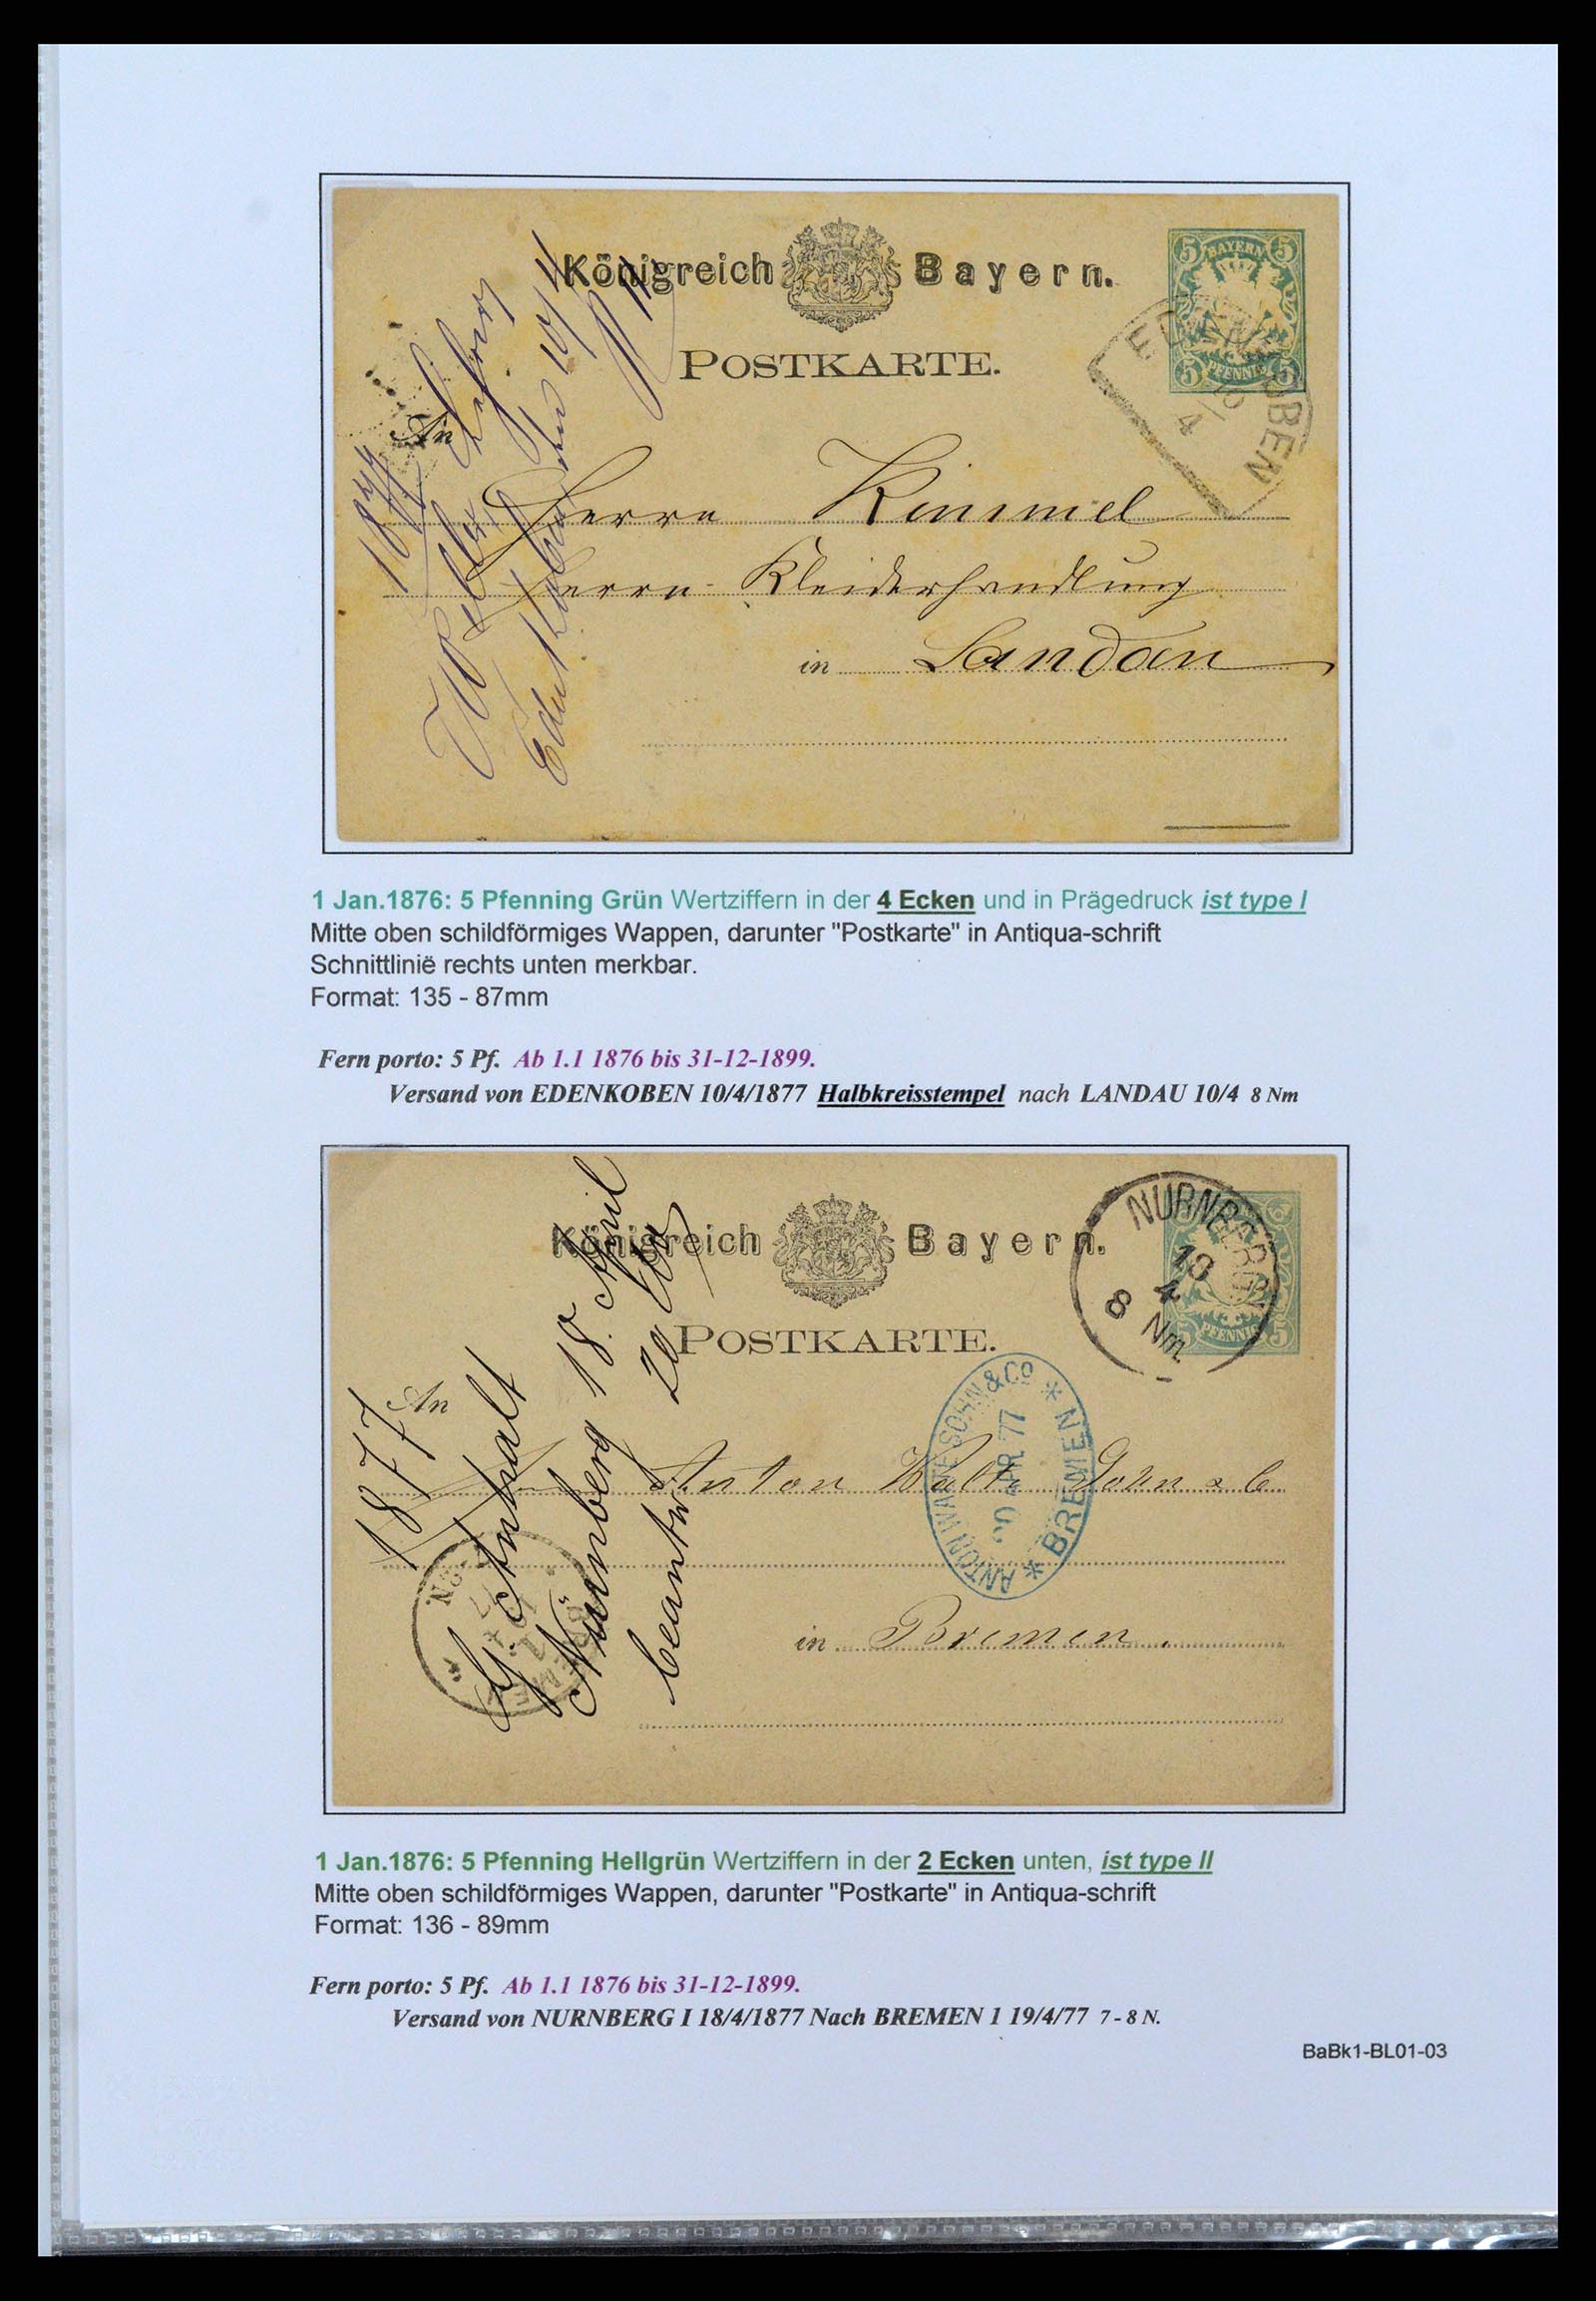 Königreich Bayern.
5 BAYERN 5
5 PFENNIG 5
POSTKARTE.
EDENKOBEN
10/4
1877
An
Herrn Kimmel
Herrn Kleiderhandlung
in Landau
1 Jan.1876: 5 Pfenning Grün Wertziffern in der 4 Ecken und in Prägedruck ist type I
Mitte oben schildförmiges Wappen, darunter "Postkarte" in Antiqua-schrift
Schnittlinië rechts unten merkbar.
Format: 135 - 87mm
Fern porto: 5 Pf. Ab 1.1 1876 bis 31-12-1899.
Versand von EDENKOBEN 10/4/1877 Halbkreisstempel nach LANDAU 10/4 8 Nm
Königreich Bayern.
NÜRNBERG
18
4
8 Nm.
5 PFENNIG 5
POSTKARTE.
1877
An
Nürnberg 18. April
beantw
ANTON WALTE SOHN & Co
20 APR 77
* BREMEN *
Anton Walte Sohn & C
in Bremen.
1 Jan.1876: 5 Pfenning Hellgrün Wertziffern in der 2 Ecken unten, ist type II
Mitte oben schildförmiges Wappen, darunter "Postkarte" in Antiqua-schrift
Format: 136 - 89mm
Fern porto: 5 Pf. Ab 1.1 1876 bis 31-12-1899.
Versand von NURNBERG I 18/4/1877 Nach BREMEN 1 19/4/77 7 - 8 N.
BaBk1-BL01-03